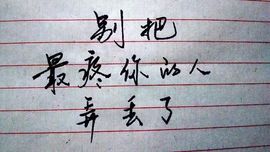 别把
最疼你的人
弄丢了